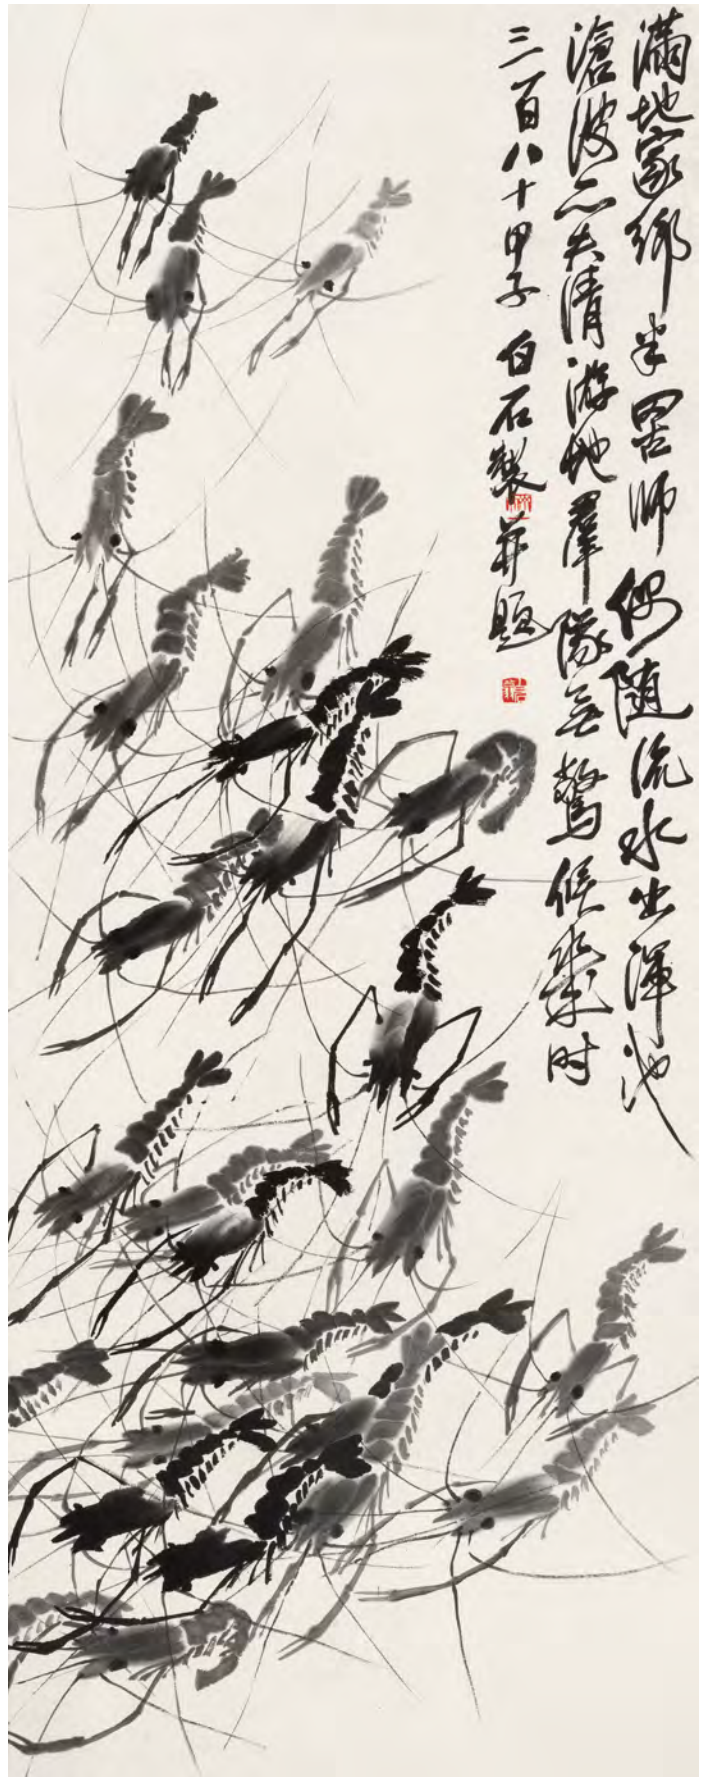 滿地家鄉半罟師偶随流水出渾池
滄波亦失清游地羣隊無驚候幾时
三百八十甲子白石製并題